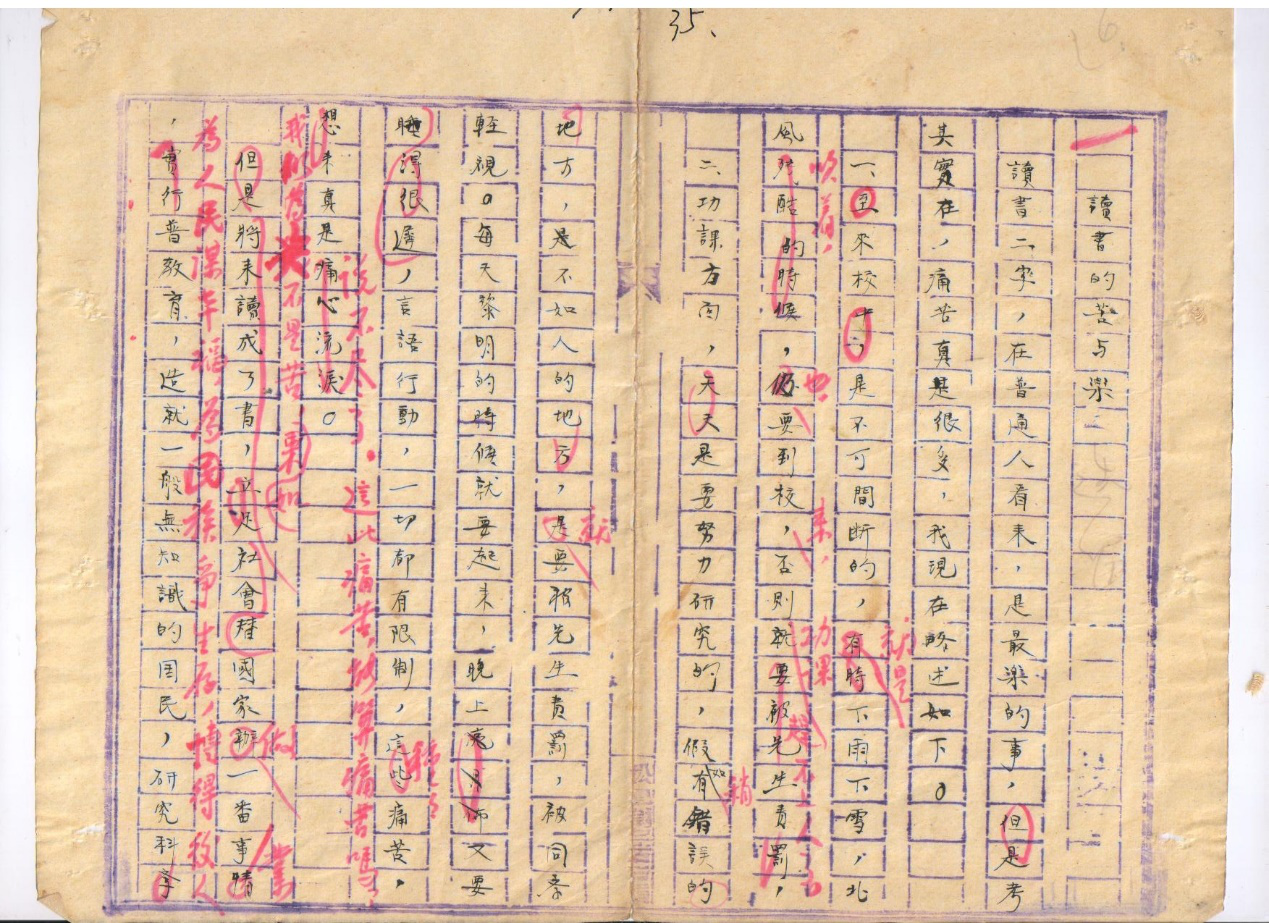 35.
6.
讀書的苦与樂
讀書二字，在普通人看来，是最樂的事，但是考
其實在，痛苦真是很多，我現在略述如下。
一、來校，是不可間断的，有時下雨下雪，北
就是
風残酷的時候，仍要到校，否則就要被先生責罰，
吹着，
也
来，
功果
不上人
二、功課方面，天天是要努力研究的，假如有錯誤的
地方，是不如人的地方，是要被先生責罰，被同學
就
輕視。每天黎明的時候就要起来，晚上又要
睡得很遲，言語行動，一切都有限制，這些痛苦，
種種
說不尽了。這些痛苦，够算痛苦嗎，
想来真是痛心流淚。
我们
不是苦
如
但是將来讀成了書，立足社會替國家辦一番事情
做
業
為人民謀幸福，為國族爭生存，博得救人
，實行普教育，造就一般無知識的国民，研究科學